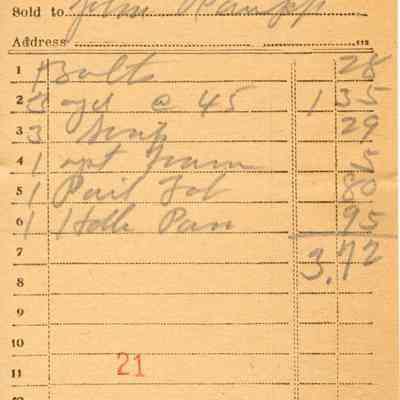 Sold to John
Address
1 1 Bolts 28
2 3 yd @ 45 1 35
3 3 29
4 1 5
5 1 Pail 80
6 1 Hdle Pan 95
7 3.72
8
9
10
11 21